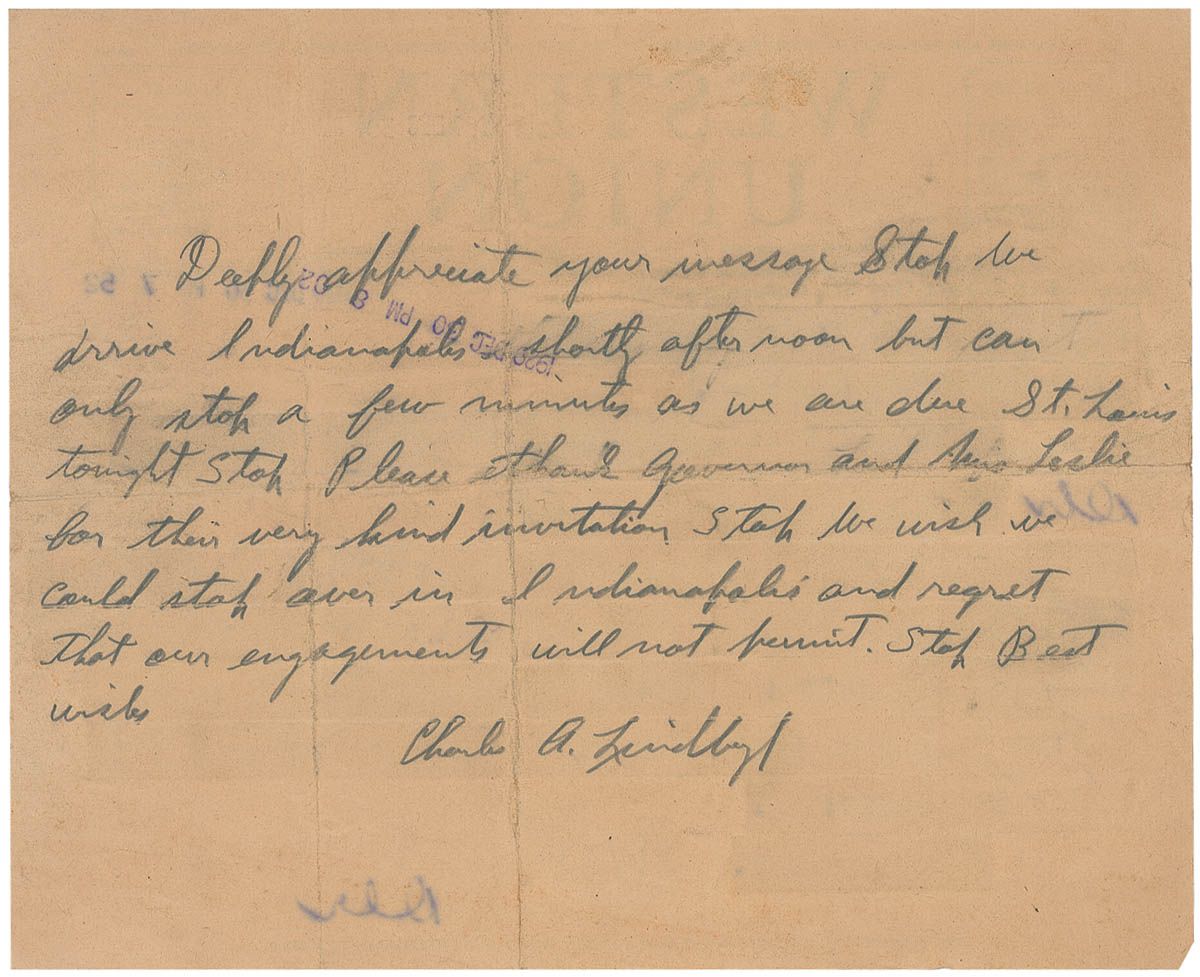 WESTERN
UNION
Deeply appreciate your message Stop We
arrive Indianapolis shortly after noon but can
only stop a few minutes as we are due St. Louis
tonight Stop Please thank Governor and Mrs Leslie
for their very kind invitation Stop We wish we
could stop over in Indianapolis and regret
that our engagements will not permit. Stop Best
wishes
Charles A. Lindbergh